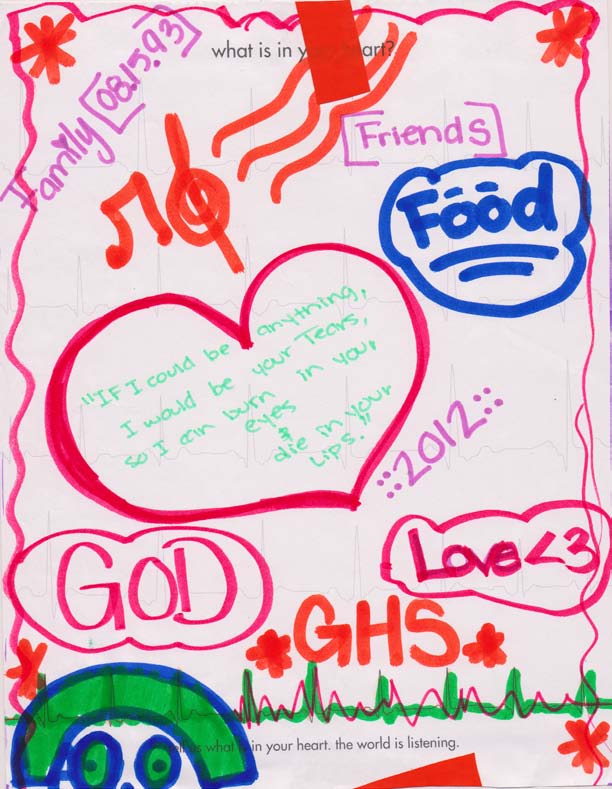 what is in your heart?
Family [08.15.93]
[Friends]
Food
"If I could be anything,
I would be your Tears,
so I can burn in your
eyes
&
die in your
Lips."
::2012::
GOD
Love<3
GHS
tell us what is in your heart. the world is listening.